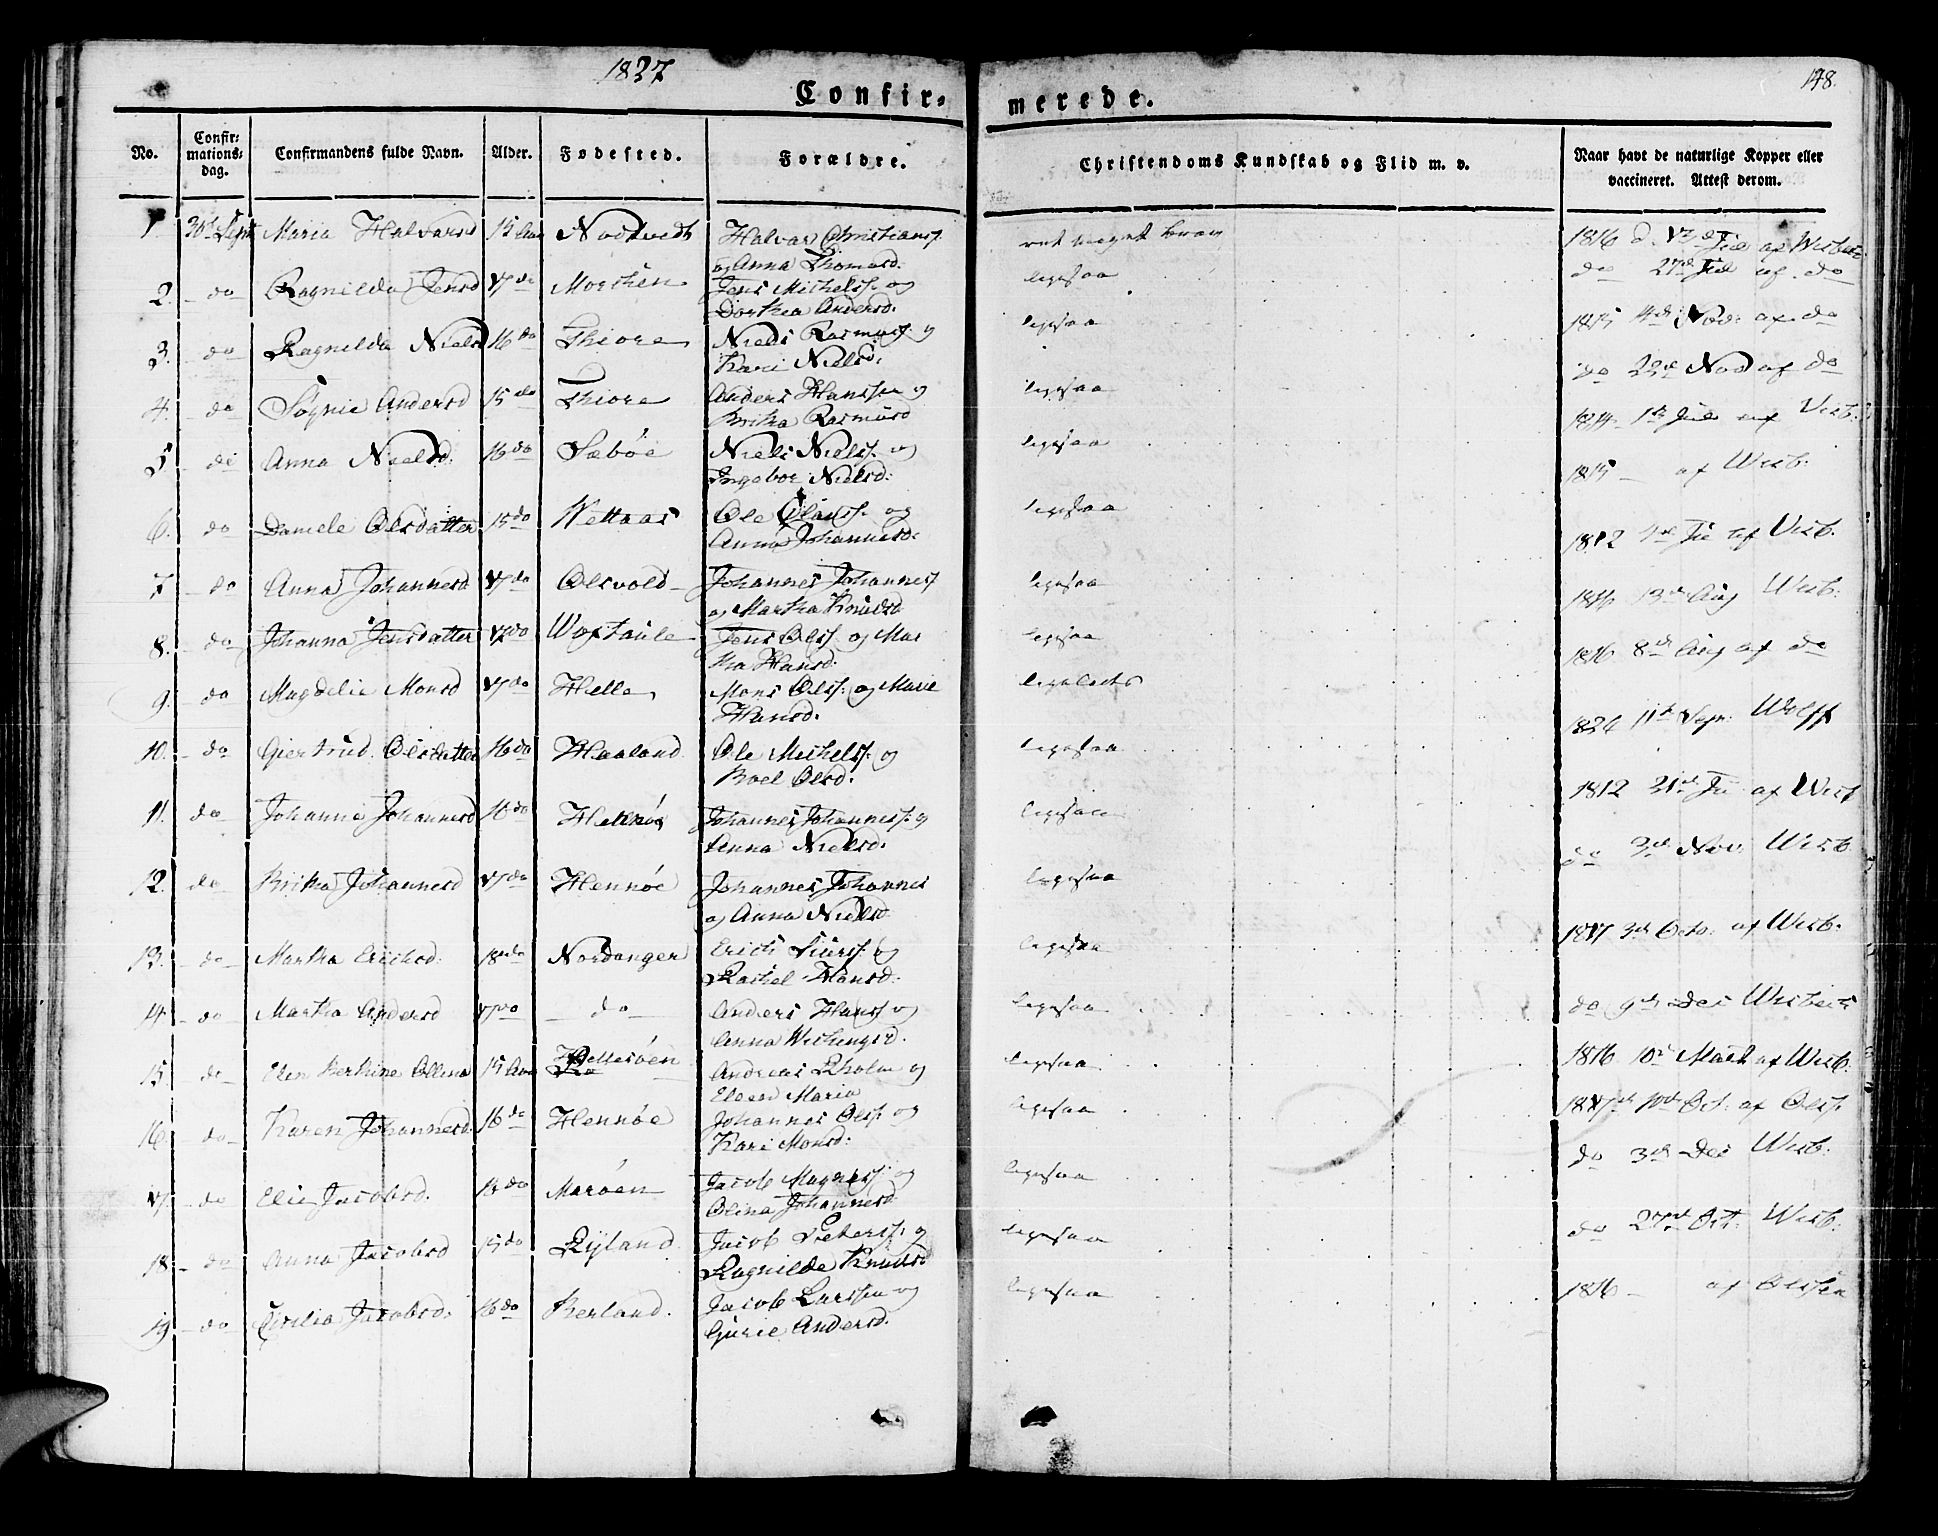 1827
148.
Confir-merede.
No.
Confir-mations-dag.
Confirmandens fulde Navn.
Alder.
Fødested.
Forældre.
Christendoms Kundskab og Flid m. v.
Naar havt de naturlige Kopper eller vaccineret. Attest derom.
1 30te Sept Maria Halvarsd 15 Aar Nodtvedt Halvar Christians. og Anna Thomasd. 1816
2. do Ragnilda Jensd 17 do Jens Michels. og Dorthea Andersd. ligesaa do 27d Jul af do
3. do Ragnilda Nielsd 16 do Thiore Niels Rasmus. og Kari Nielsd: ligesaa 1815 af do
4. do Søgnie Andersd 15 do Thiore Anders Hanssen og Britha Rasmusd ligesaa do 22d Nov af do
5 do Anna Nielsd: 16 do Sæbøe Niels Niels. og Ingebor Nielsd: ligesaa 1814 Wesb:
6. do Daniele Olsdatter 15 do Wettaas Ole Olaus. og Anna Johannesd: ligesaa 1815 af Wesb:
7 do Anna Johannesd 17 do Olsvold Johannes Johannes. og Martha Knudsd ligesaa 1812 af Wesb.
8. do Johanna Jensdatter 17 do Jens Ols. og Martha Hansd: ligesaa 1816 13d Aug Wesb:
9. do Magdelie Monsd 17 do Helle Mons Ols. og Marie Hansd. ligeledes 1816 8d Aug af do
10. do Giertrud Olsdatter 16 do Haaland Ole Michels. og Boel Olsd. ligesaa 1826 11te Sepr: Wolff
11. do Johanne Johannesd 16 do Johannes Johannes. og Anna Nielsd. ligesaa 1812 af Wesb
12. do Britha Johannesd 17 do Hennøe Johannes Johannes og Anna Nielsd ligesaa do 3d Nov: Wesb
13. do Martha Erichsd: 18 do Nordanger Erich Siurs. og Rachel Hansd: ligesaa 1817 3d Octo: af Wesb.
14. do Martha Andersd 17 do do Anders Hans. og Anna ligesaa do 9d Des
15. do Elen Berthine Ollina 15 Aar Hellesøen Andreas og Eleen Maria ligesaa 1816 10d af Wesb:
16. do Karen Johannesd. 16 do Hennøe Johannes Ols. og Kari Monsd: ligesaa Oct: af Ols.
17. do Elie Jacobsd. do Marøen Jacob Magnes. og Olina Johannesd ligesaa do 3d Des Wesb:
18. do Anna Jacobsd 15 do Ryland Jacob Peters. og Ragnilde Knudsd ligesaa do 27d Oct: Wesb:
19 do Cicilia Jacobsd: 16 do Berland. Jacob Larssen og Gurie Andersd. ligesaa 1816 af Olssen